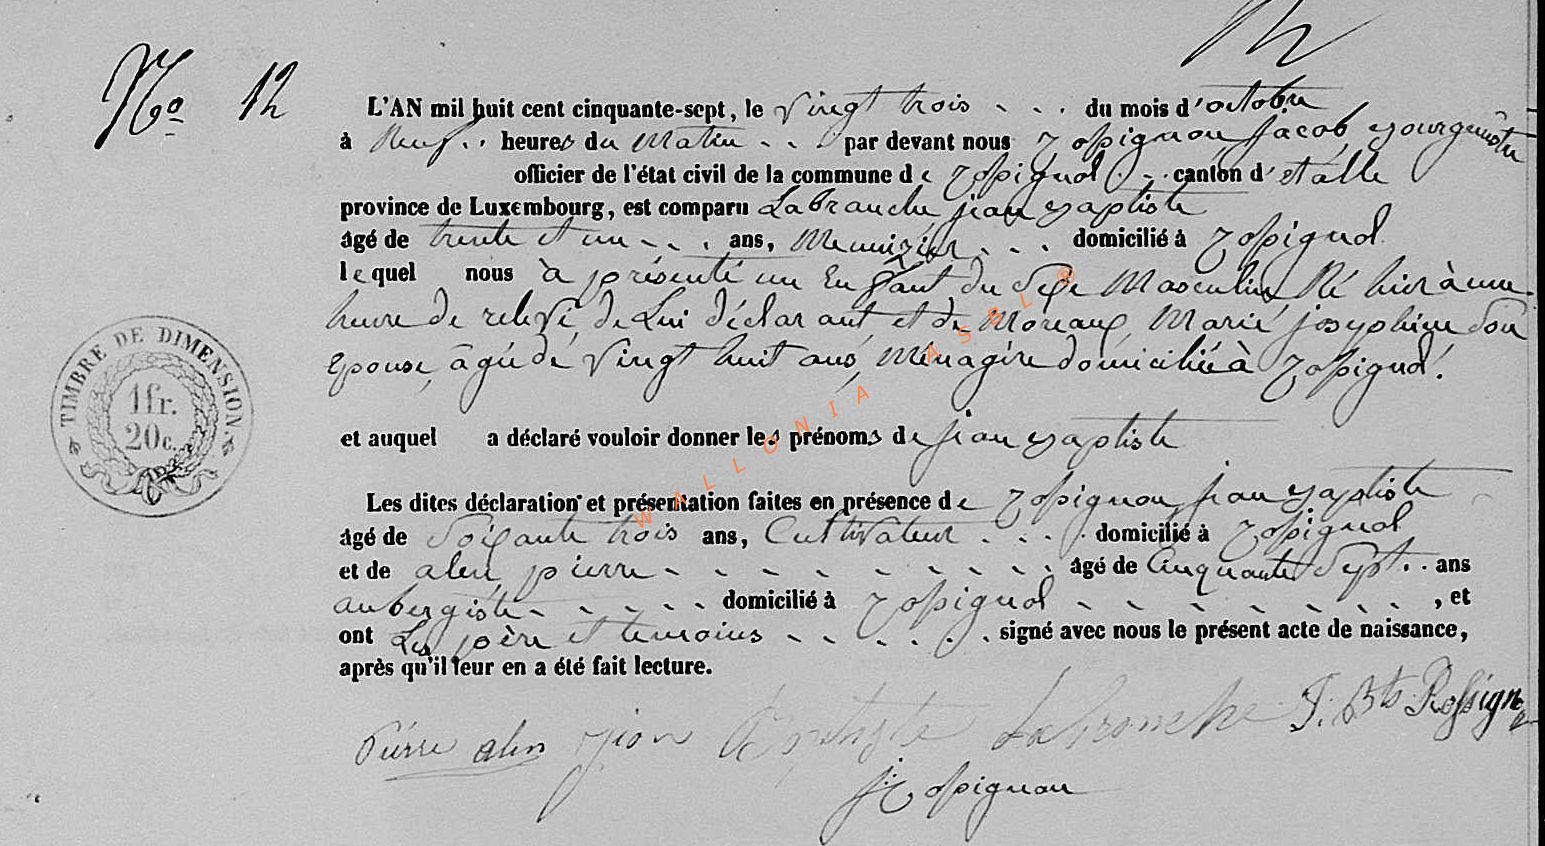 No 12
L'AN mil huit cent cinquante-sept, le vingt trois - - - du mois d'octobre
à Neuf .. heures du Matin - - . par devant nous Rossignon jacob, bourgmestre
officier de l'état civil de la commune de Rossignol . - . canton d'étalle
province de Luxembourg, est comparu Labranche jean baptiste
âgé de trente et un - - . ans, Menuizier - - . domicilié à Rossignol
lequel nous à présenté un Enfant du Sexe Masculin, Né hier à une
heure de relevé, de Lui déclarant et de Moreaux, Marie joséphine Son
Epouse, âgée de vingt huit ans, Ménagère domiciliée à Rossignol.
et auquel a déclaré vouloir donner les prénoms de jean baptiste
Les dites déclaration et présentation faites en présence de Rossignon jean baptiste
âgé de Soixante trois ans, Cultivateur - . . . domicilié à Rossignol
et de alen pierre - - - - - - - - - . . âgé de Cinquante Sept . . ans
aubergiste - - - - - . . domicilié à Rossignol - - - - - - - . . , et
ont Les père et temoins - - - . . . signé avec nous le présent acte de naissance,
après qu'il leur en a été fait lecture.
Pierre alen jean Baptiste Labranche J. Bte Rossignon
j: Rossignon
TIMBRE DE DIMENSION
1 fr.
20 c.
WALLONIA ASBL ®